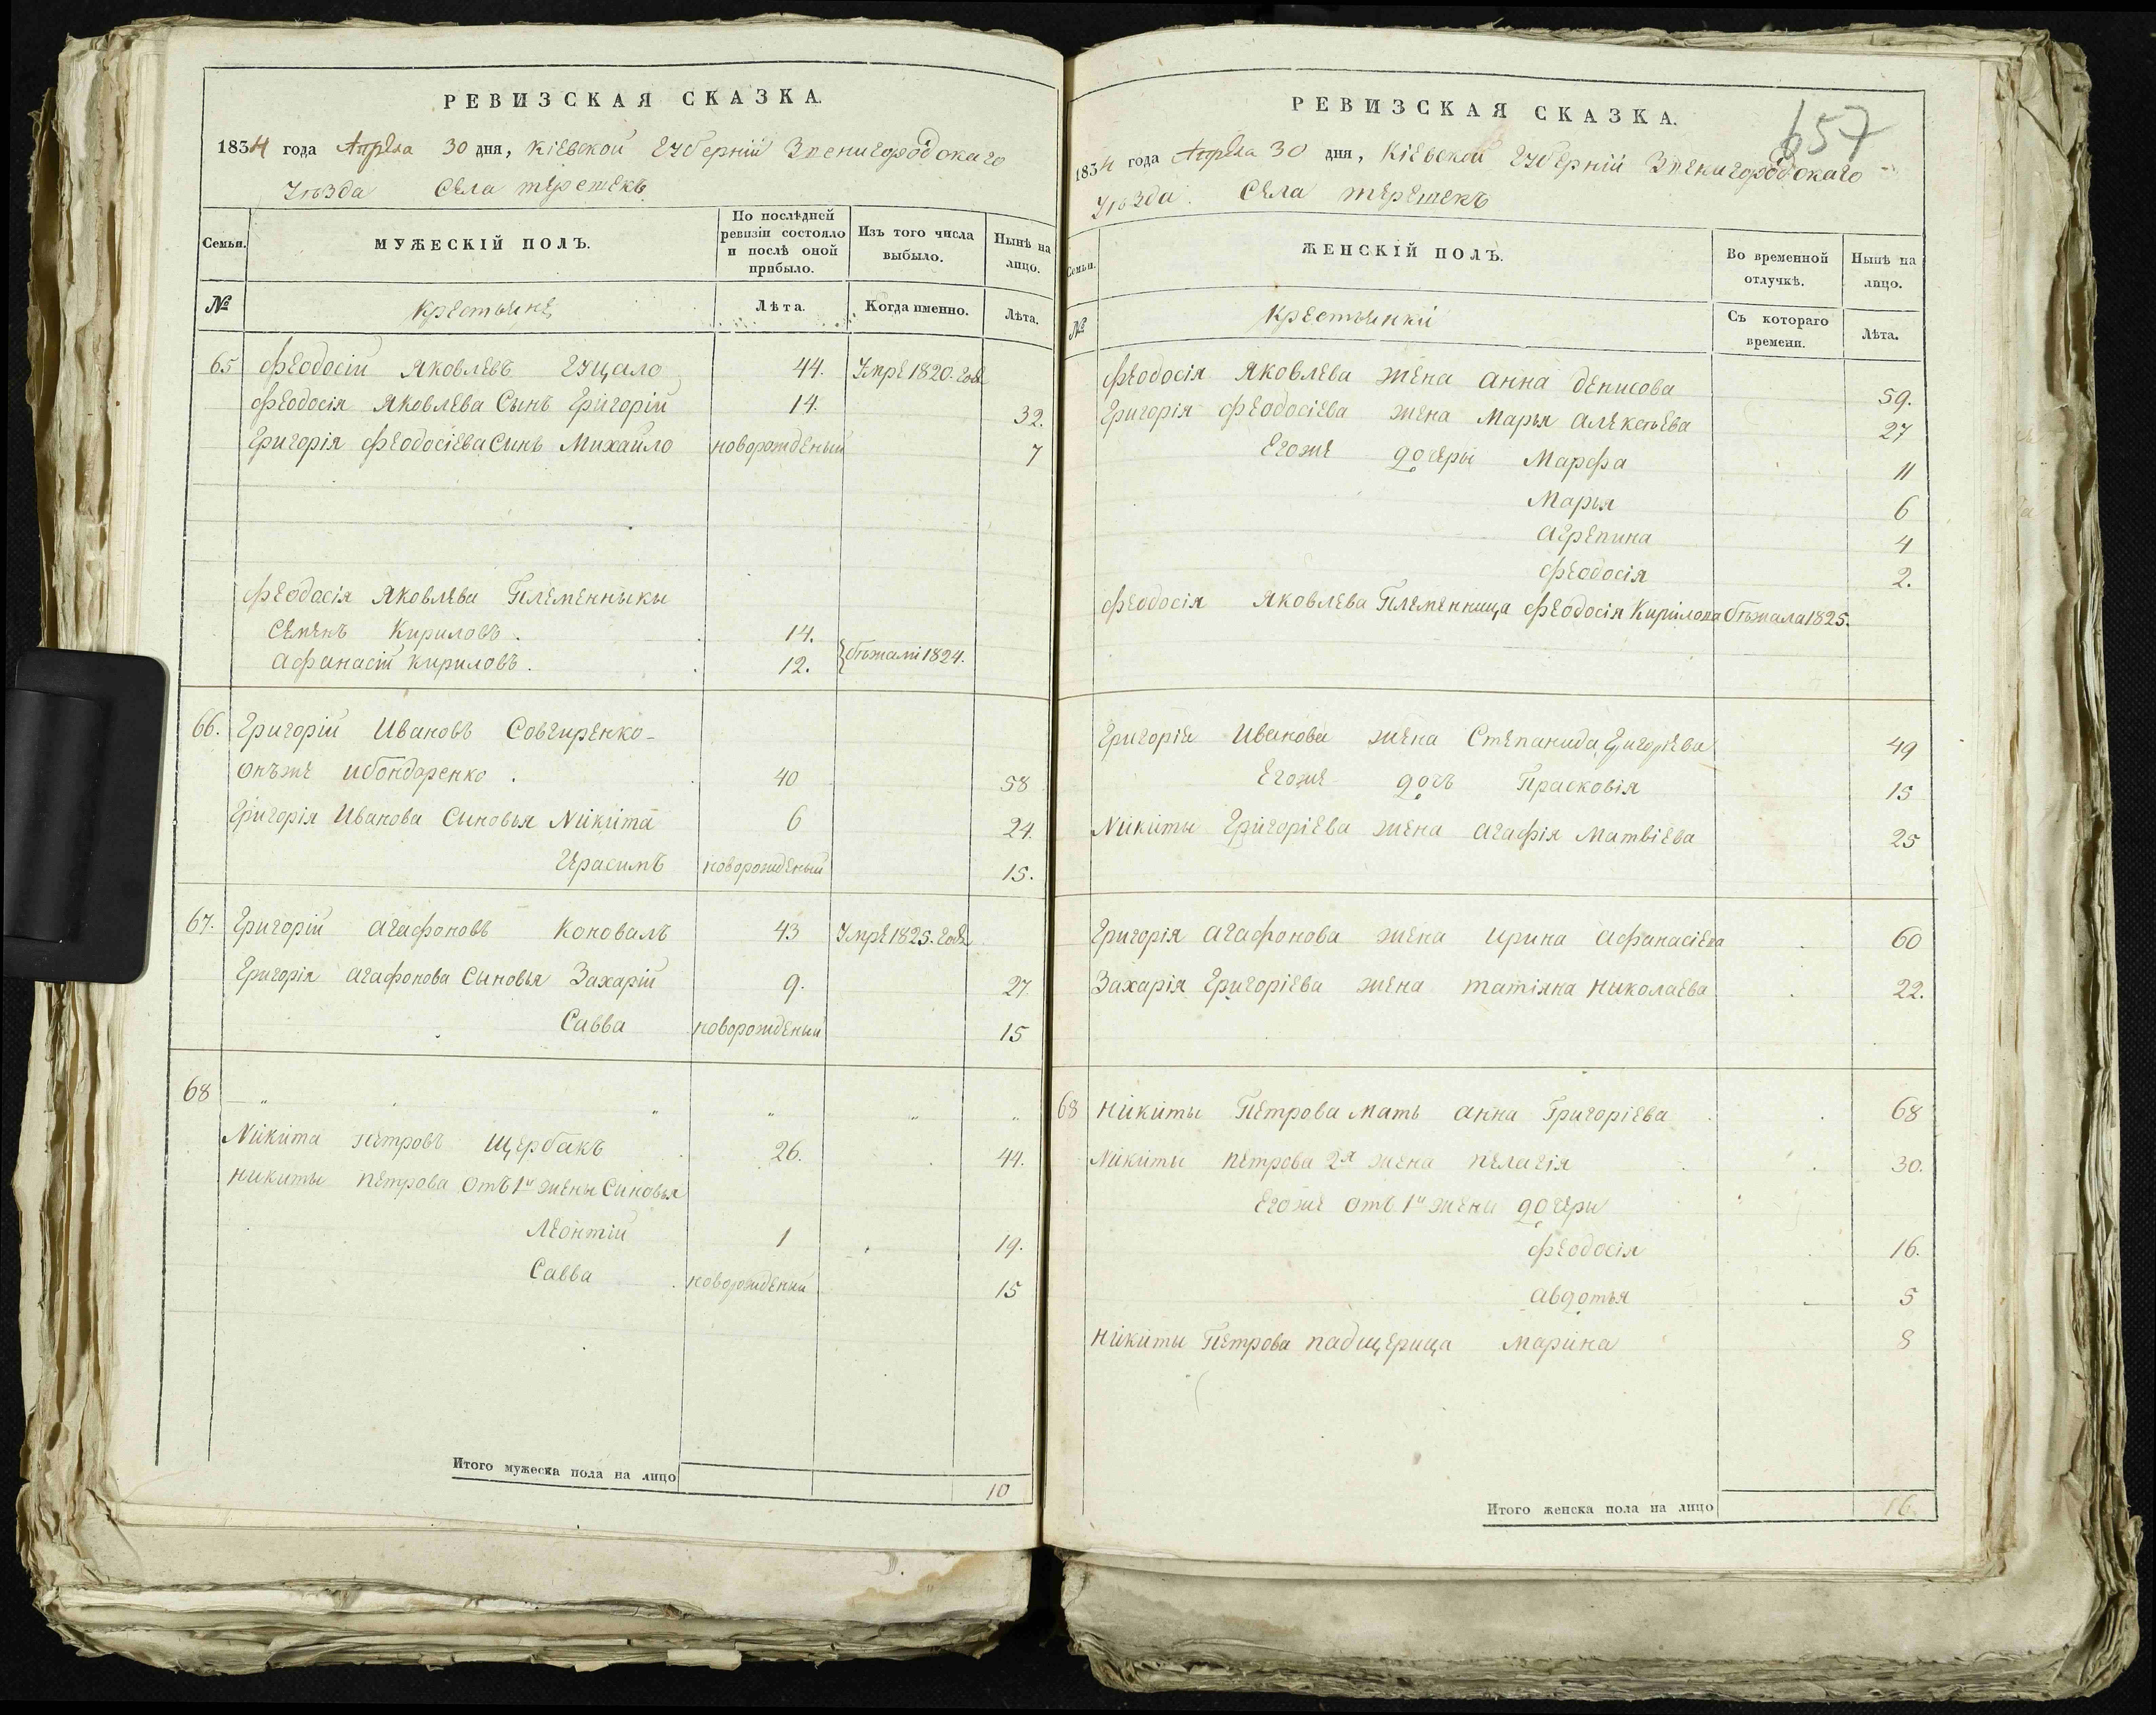 РЕВИЗСКАЯ СКАЗКА.
1834 года Апреля 30 дня, Кіевской Губерніи Звенигородскаго
Уѣзда Села терешекъ
Семьи.
МУЖЕСКІЙ ПОЛЪ.
По послѣдней ревизіи состояло и послѣ оной прибыло.
Изъ того числа выбыло.
Нынѣ на лицо.
№
Крестьяне
Лѣта.
Когда именно.
Лѣта.
65 Феодосій Яковлевъ Гуцало 44. Умре 1820. года
Феодосія Яковлева Сынъ Григорій 14. 32.
Григорія Феодосіева Сынъ Михайло новорожденый 7
Феодосія Яковлева Племенныкы
Семенъ Кириловъ. 14.
Афанасій Кириловъ. 12. бѣжали 1824.
66. Григорій Ивановъ Совгиренко
Онъже ибондаренко. 40 58
Григорія Иванова Сыновья Никита 6 24.
Герасимъ новорожденый 15.
67. Григорій Агафоновъ Коновалъ 43 Умре 1825. года
Григорія Агафонова Сыновья Захарій 9. 27.
Савва новорожденый 15
68 „ „ „ „ „ „
Никита Петровъ Щербакъ 26. 44.
Никиты Петрова отъ 1й жены Сыновья
Леонтій 1 19.
Савва новорожденый 15
Итого мужеска пола на лицо 10
657
РЕВИЗСКАЯ СКАЗКА.
1834 года Апреля 30 дня, Кіевской Губерніи Звенигородскаго
Уѣзда Села терешекъ
Семьи.
ЖЕНСКІЙ ПОЛЪ.
Во временной отлучкѣ.
Нынѣ на лицо.
№
Крестьянки
Съ котораго времени.
Лѣта.
Феодосія Яковлева жена Анна Денисова 59.
Григорія Феодосіева жена Марья Алексѣева 27
Егоже дочеры Марфа 11
Марья 6
Агрепина 4
Феодосія 2.
Феодосія Яковлева Племенница Феодосія Кирилова бѣжала 1825.
Григорія Иванова жена Степанида Григоріева 49
Егоже дочь Прасковія 15
Никиты Григоріева жена Агафія Матвіева 25
Григорія Агафонова жена Ирина Афанасіева 60
Захарія Григоріева жена Татіяна Николаева 22.
68 Никиты Петрова Мать Анна Григоріева 68
Никиты Петрова 2я жена Пелагія 30.
Егоже отъ 1й жены дочеры
Феодосія 16.
Авдотья 5
Никиты Петрова падщерица Марина 8
Итого женска пола на лицо 16.